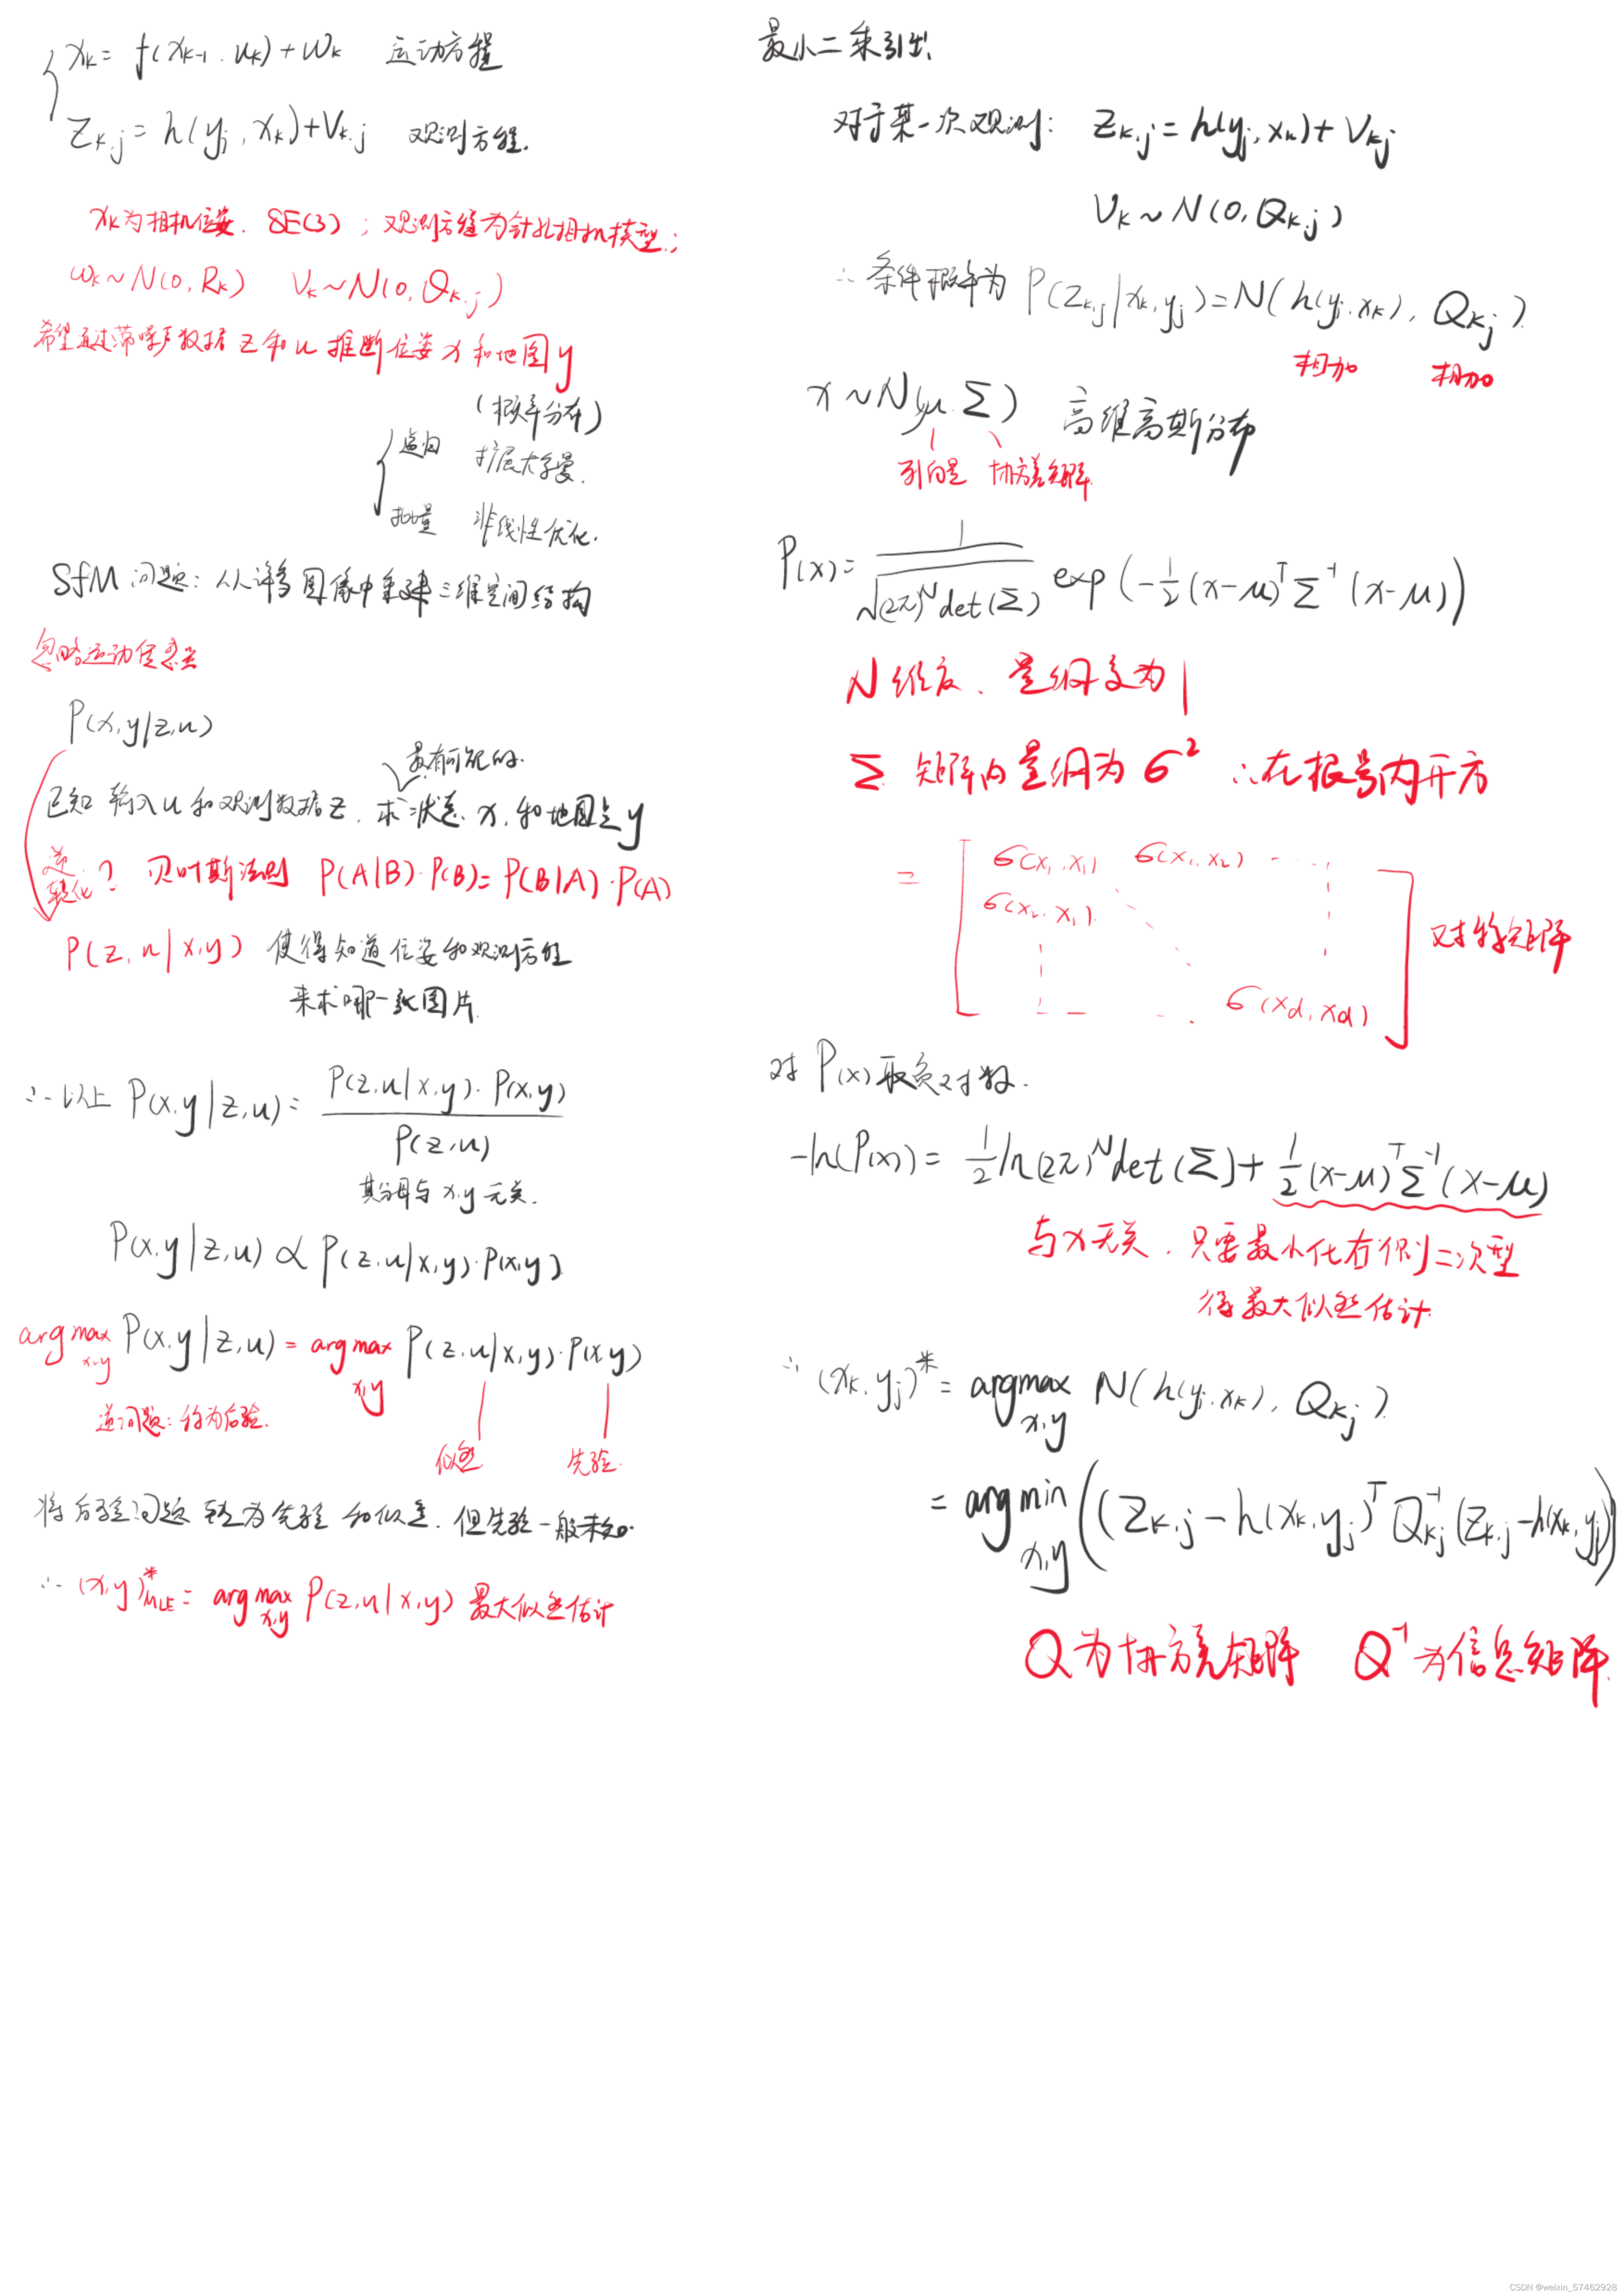 x_k = f(x_{k-1}, u_k) + w_k 运动方程
z_{k,j} = h(y_j, x_k) + v_{k,j} 观测方程.
x_k为相机位姿. SE(3); 观测方程为针孔相机模型;
w_k ~ N(0, R_k) v_k ~ N(0, Q_{k,j})
希望通过带噪声数据 z 和 u 推断位姿 x 和地图 y
(概率分布)
扩展卡尔曼.
批量 非线性优化.
SfM 问题: 从许多图像中重建三维空间结构
忽略运动信息
P(x,y|z,u)
最有可能的.
已知 输入 u 和观测数据 z, 求状态 x, 和地图点 y
逆 转化? 贝叶斯法则 P(A|B)·P(B)=P(B|A)·P(A)
P(z,u|x,y) 使得知道位姿和观测方程
来求哪一张图片
∴以上 P(x,y|z,u) = P(z,u|x,y)·P(x,y) / P(z,u)
其分母与 x,y 无关.
P(x,y|z,u) ∝ P(z,u|x,y)·P(x,y)
arg max_{x,y} P(x,y|z,u) = arg max_{x,y} P(z,u|x,y)·P(x,y)
逆问题: 称为后验.
似然 先验.
将后验问题 转为先验和似然. 但先验一般未知.
∴ (x,y)*_{MLE} = arg max_{x,y} P(z,u|x,y) 最大似然估计
最小二乘引出
对于某一次观测: z_{k,j} = h(y_j, x_k) + v_{k,j}
v_k ~ N(0, Q_{k,j})
∴ 条件概率为 P(z_{k,j}|x_k,y_j) = N(h(y_j,x_k), Q_{k,j})
相加 相加
x ~ N(μ, Σ) 高维高斯分布
列向量 协方差矩阵
P(x) = 1/√((2π)^N det(Σ)) exp(-1/2 (x-μ)^T Σ^{-1} (x-μ))
N 维度、量纲变为1
Σ 矩阵内量纲为 σ² ∴在根号内开方
= [ σ(x₁,x₁) σ(x₁,x₂)
σ(x₂,x₁)
σ(x_d,x_d) ] 对称矩阵
对 P(x) 取负对数.
-ln(P(x)) = 1/2 ln(2π)^N det(Σ) + 1/2 (x-μ)^T Σ^{-1} (x-μ)
与x无关, 只要最小化右侧二次型
得最大似然估计
∴ (x_k, y_j)* = argmax_{x,y} N(h(y_j,x_k), Q_{k,j})
= arg min_{x,y} ((z_{k,j} - h(x_k,y_j)^T Q_{k,j}^{-1} (z_{k,j} - h(x_k,y_j))
Q为协方差矩阵 Q^{-1}为信息矩阵.
CSDN @weixin_57462928